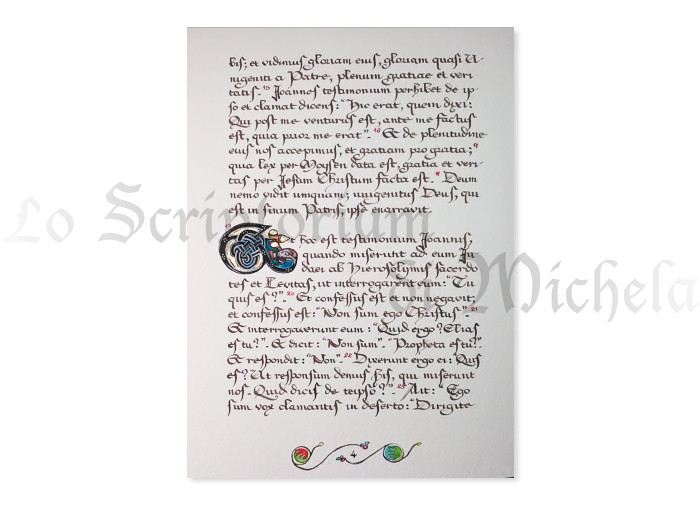 bis; et vidimus gloriam eius, gloriam quasi U-
nigeniti a Patre, plenum gratiae et veri-
tatis.- 15 Joannes testimonium perhibet de ip-
so et clamat dicens: "Hic erat, quem dixi:
Qui post me venturus est, ante me factus
est, quia prior me erat".- 16 Et de plenitudine
eius nos accepimus, et gratiam pro gratia; 17
quia lex per Moysen data est, gratia et veri-
tas per Jesum Christum facta est. 18 Deum
nemo vidit umquam; unigenitus Deus, qui
est in sinum Patris, ipse enarravit.
19 Et hoc est testimonium Joannis,
quando miserunt ad eum Ju-
daei ab Hierosolymis sacerdo-
tes et Levitas, ut interrogarent eum: "Tu
quis es?".- 20 Et confessus est et non negavit;
et confessus est: "Non sum ego Christus".- 21
Et interrogaverunt eum: "Quid ergo? Elias
es tu?".- Et dicit: "Non sum".- "Propheta es tu?".-
Et respondit: "Non".- 22 Dixerunt ergo ei: "Quis
es? Ut responsum demus his, qui miserunt
nos.- Quid dicis de teipso?".- 23 Ait: "Ego
sum vox clamantis in deserto: "Dirigite
4
Lo Scriptorium
di Michela